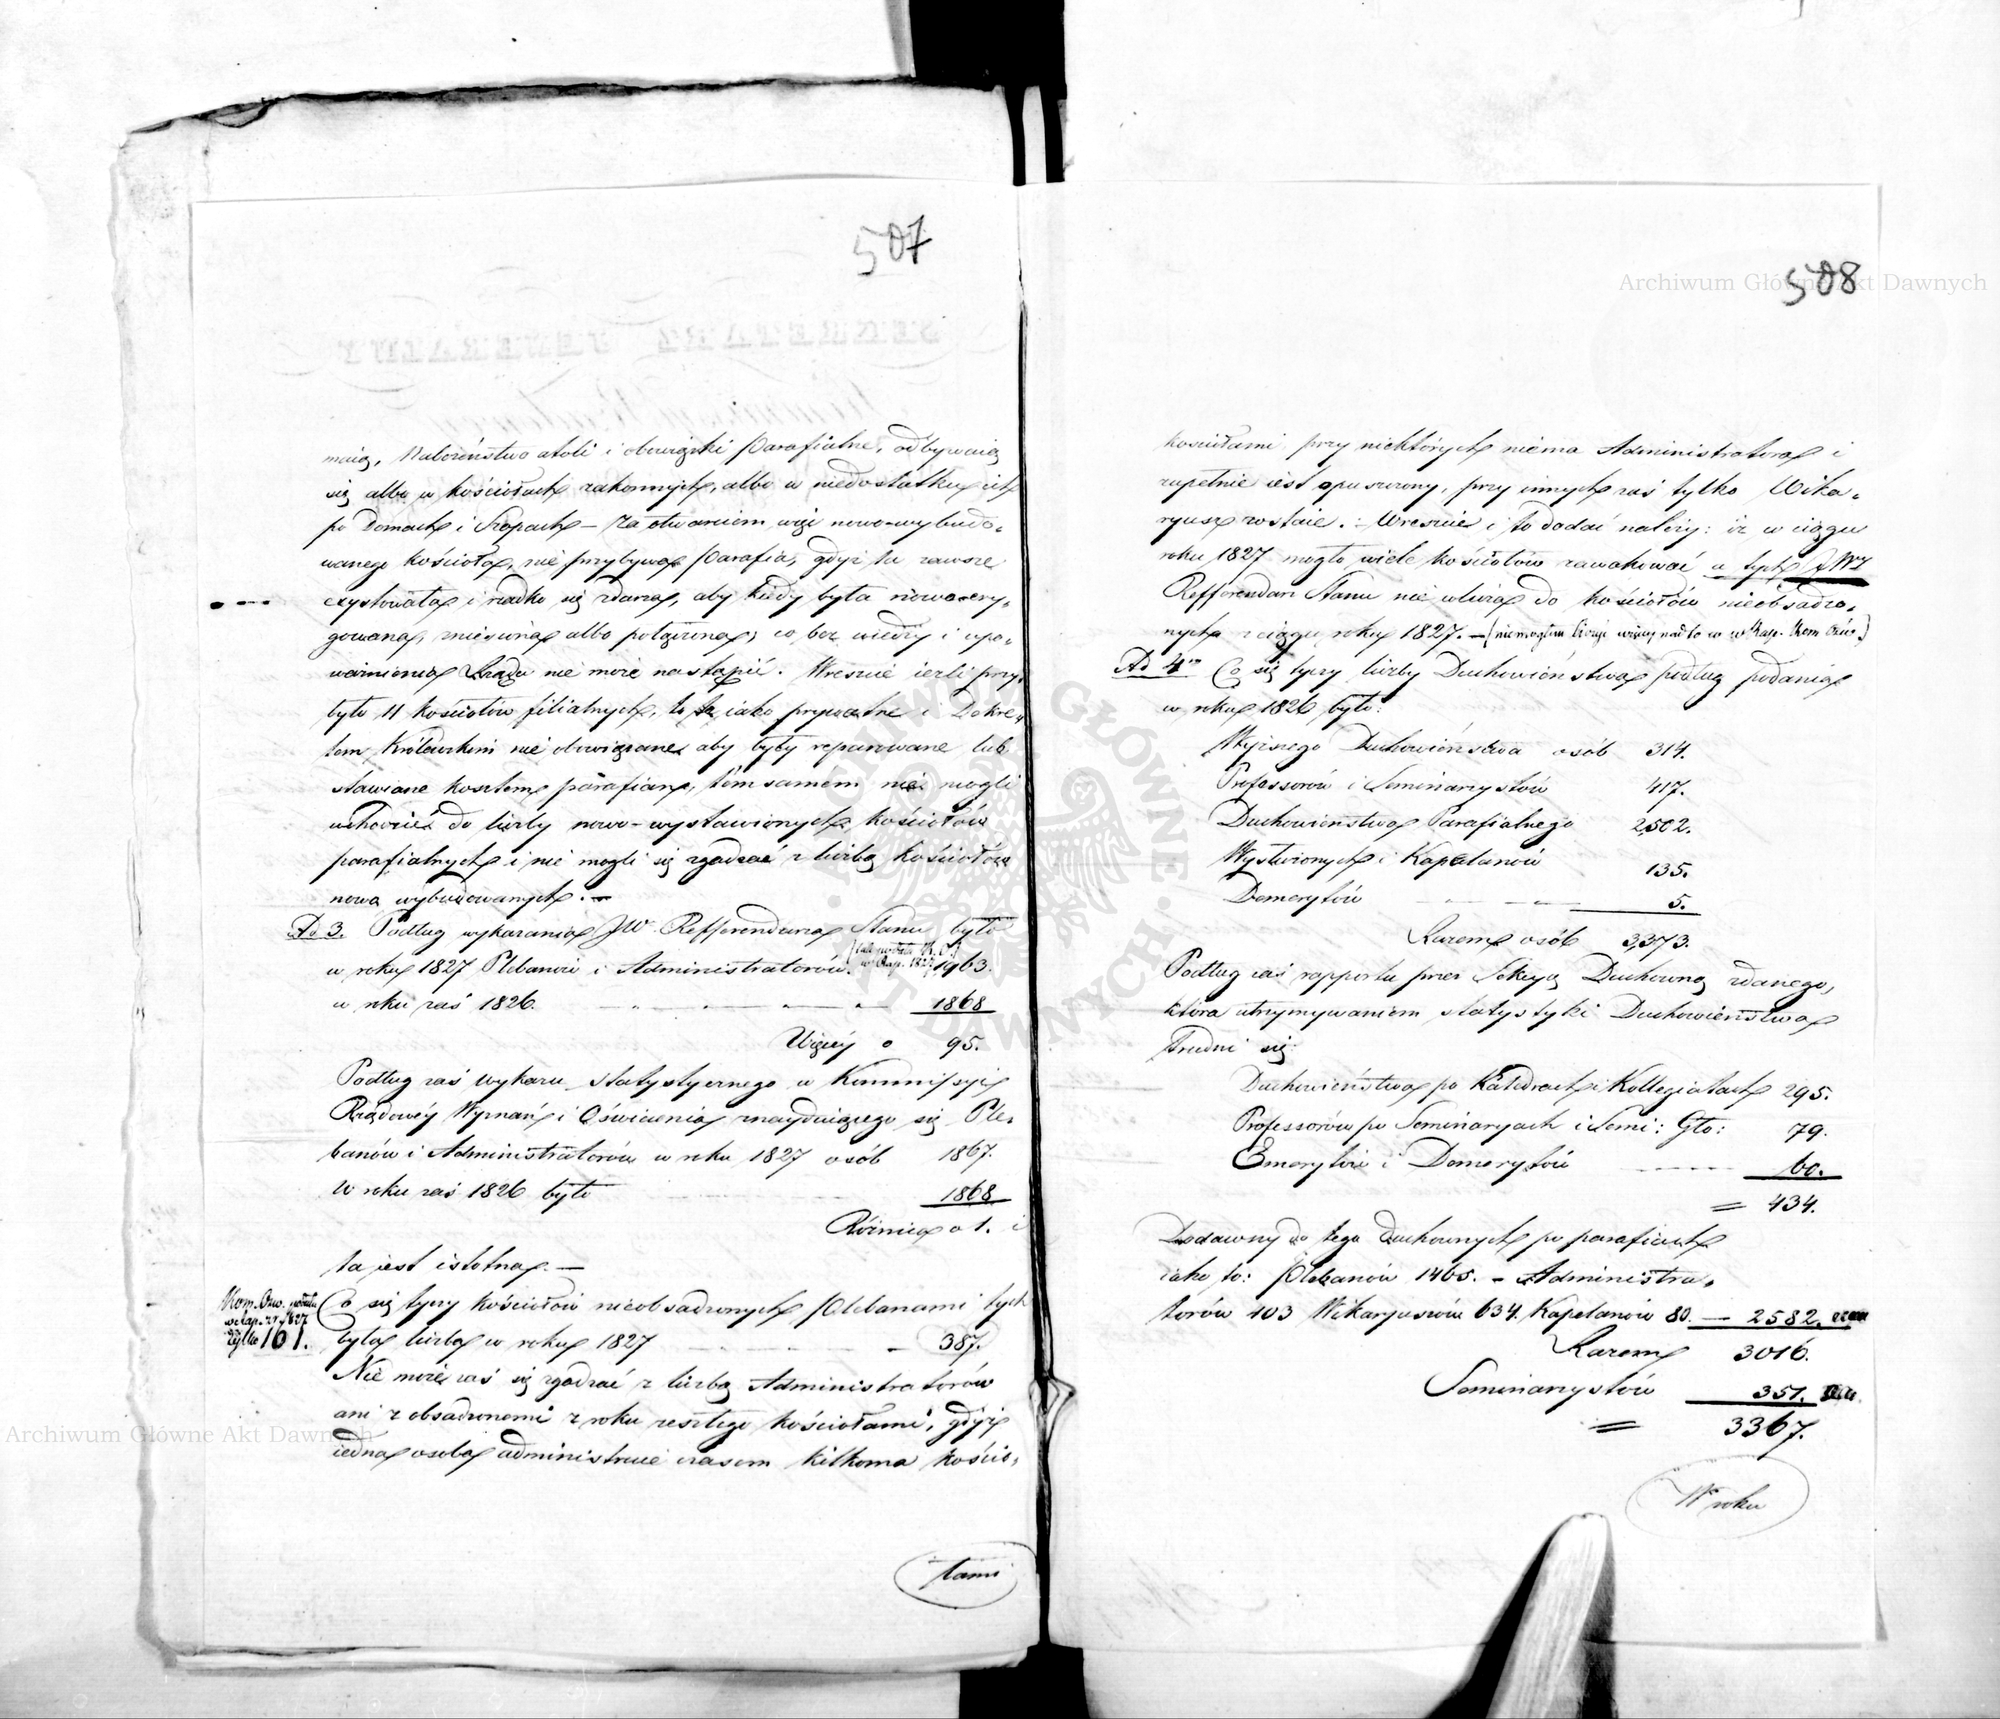 507
maią, Nabożeństwo atoli i obowiązki Parafialne, odbywaią
się albo w kościołach zakonnych, albo w niedostatku ich
po Domach i Szopach – Za otwarciem więc nowo-wybudo-
wanego kościoła, nie przybywa Parafia, gdyż ta zawsze
exystowała i rzadko się zdarza, aby kiedy była nowo-ery-
gowana, zniesiona albo połączona, co bez wiedzy i upo-
ważnienia Rządu nie może nastąpić. Wreszcie ieżli przy-
było 11 kościołów filialnych, to są iako prywatne i Dekre-
tem Królewskim nie obowiązane aby były reparowane lub
stawiane kosztem parafian, tém samém nie mogli
uchodzić do liczby nowo-wystawionych kościołów
parafialnych i nie mogli się zgadzać z liczbą kościołów
nowo wybudowanych. –
Ad 3. Podług wykazania JW. Refferendarza Stanu było
w roku 1827 Plebanów i Administratorów 1963.
w roku zaś 1826. 1868
Więcéy o 95.
Podług zaś wykazu statystycznego w Kommissyi
Rządowéy Wyznań i Oświecenia znayduiącego się Ple-
banów i Administratorów w roku 1827 osób 1867.
W roku zaś 1826 było 1868
Różnica o 1. i
ta jest istotna. –
Kom. Ośw. podała
w Rap. z r. 1827
tylko 161.
Co się tyczy kościołów nieobsadzonych Plebanami tych
była liczba w roku 1827 – 387.
Nie może zaś się zgadzać z liczbą Administratorów
ani z obsadzonemi z roku zeszłego kościołami, gdyż
iedna osoba administruie czasem kilkoma kościo-
łami
508
kościołami przy niektórych niema Administratora i
zupełnie iest opuszczony, przy innych zaś tylko Wika-
ryusz zostaie. Wreszcie i to dodać należy: iż w ciągu
roku 1827 mogło wiele kościołów zawakować a tych JW
Refferendarz Stanu nie wlicza do kościołów nieobsadzo-
nych z ciągu roku 1827. –
Ad 4m Co się tyczy liczby Duchowieństwa podług podania
w roku 1826 było:
Wyższego Duchowieństwa osób 314.
Professorów i Seminarzystów 417.
Duchowieństwa Parafialnego 2,502.
Wysłużonych i Kapelanów 135.
Demerytów 5.
Razem osób 3,373.
Podług zaś rapportu przez Sekcyą Duchowną zdanego,
która utrzymywaniem statystyki Duchowieństwa
trudni się:
Duchowieństwa po Katedrach i Kollegiatach 295.
Professorów po Seminaryach i Semi: Głó: 79.
Emerytów i Demerytów 60.
= 434.
Dodawszy do tego Duchownych po parafiach
iako to: Plebanów 1465. – Administra-
torów 403 Wikaryuszów 634. Kapelanów 80. – 2582.
Razem 3016.
Seminarzystów 351.
= 3367.
W roku
Archiwum Główne Akt Dawnych
Archiwum Główne Akt Dawnych